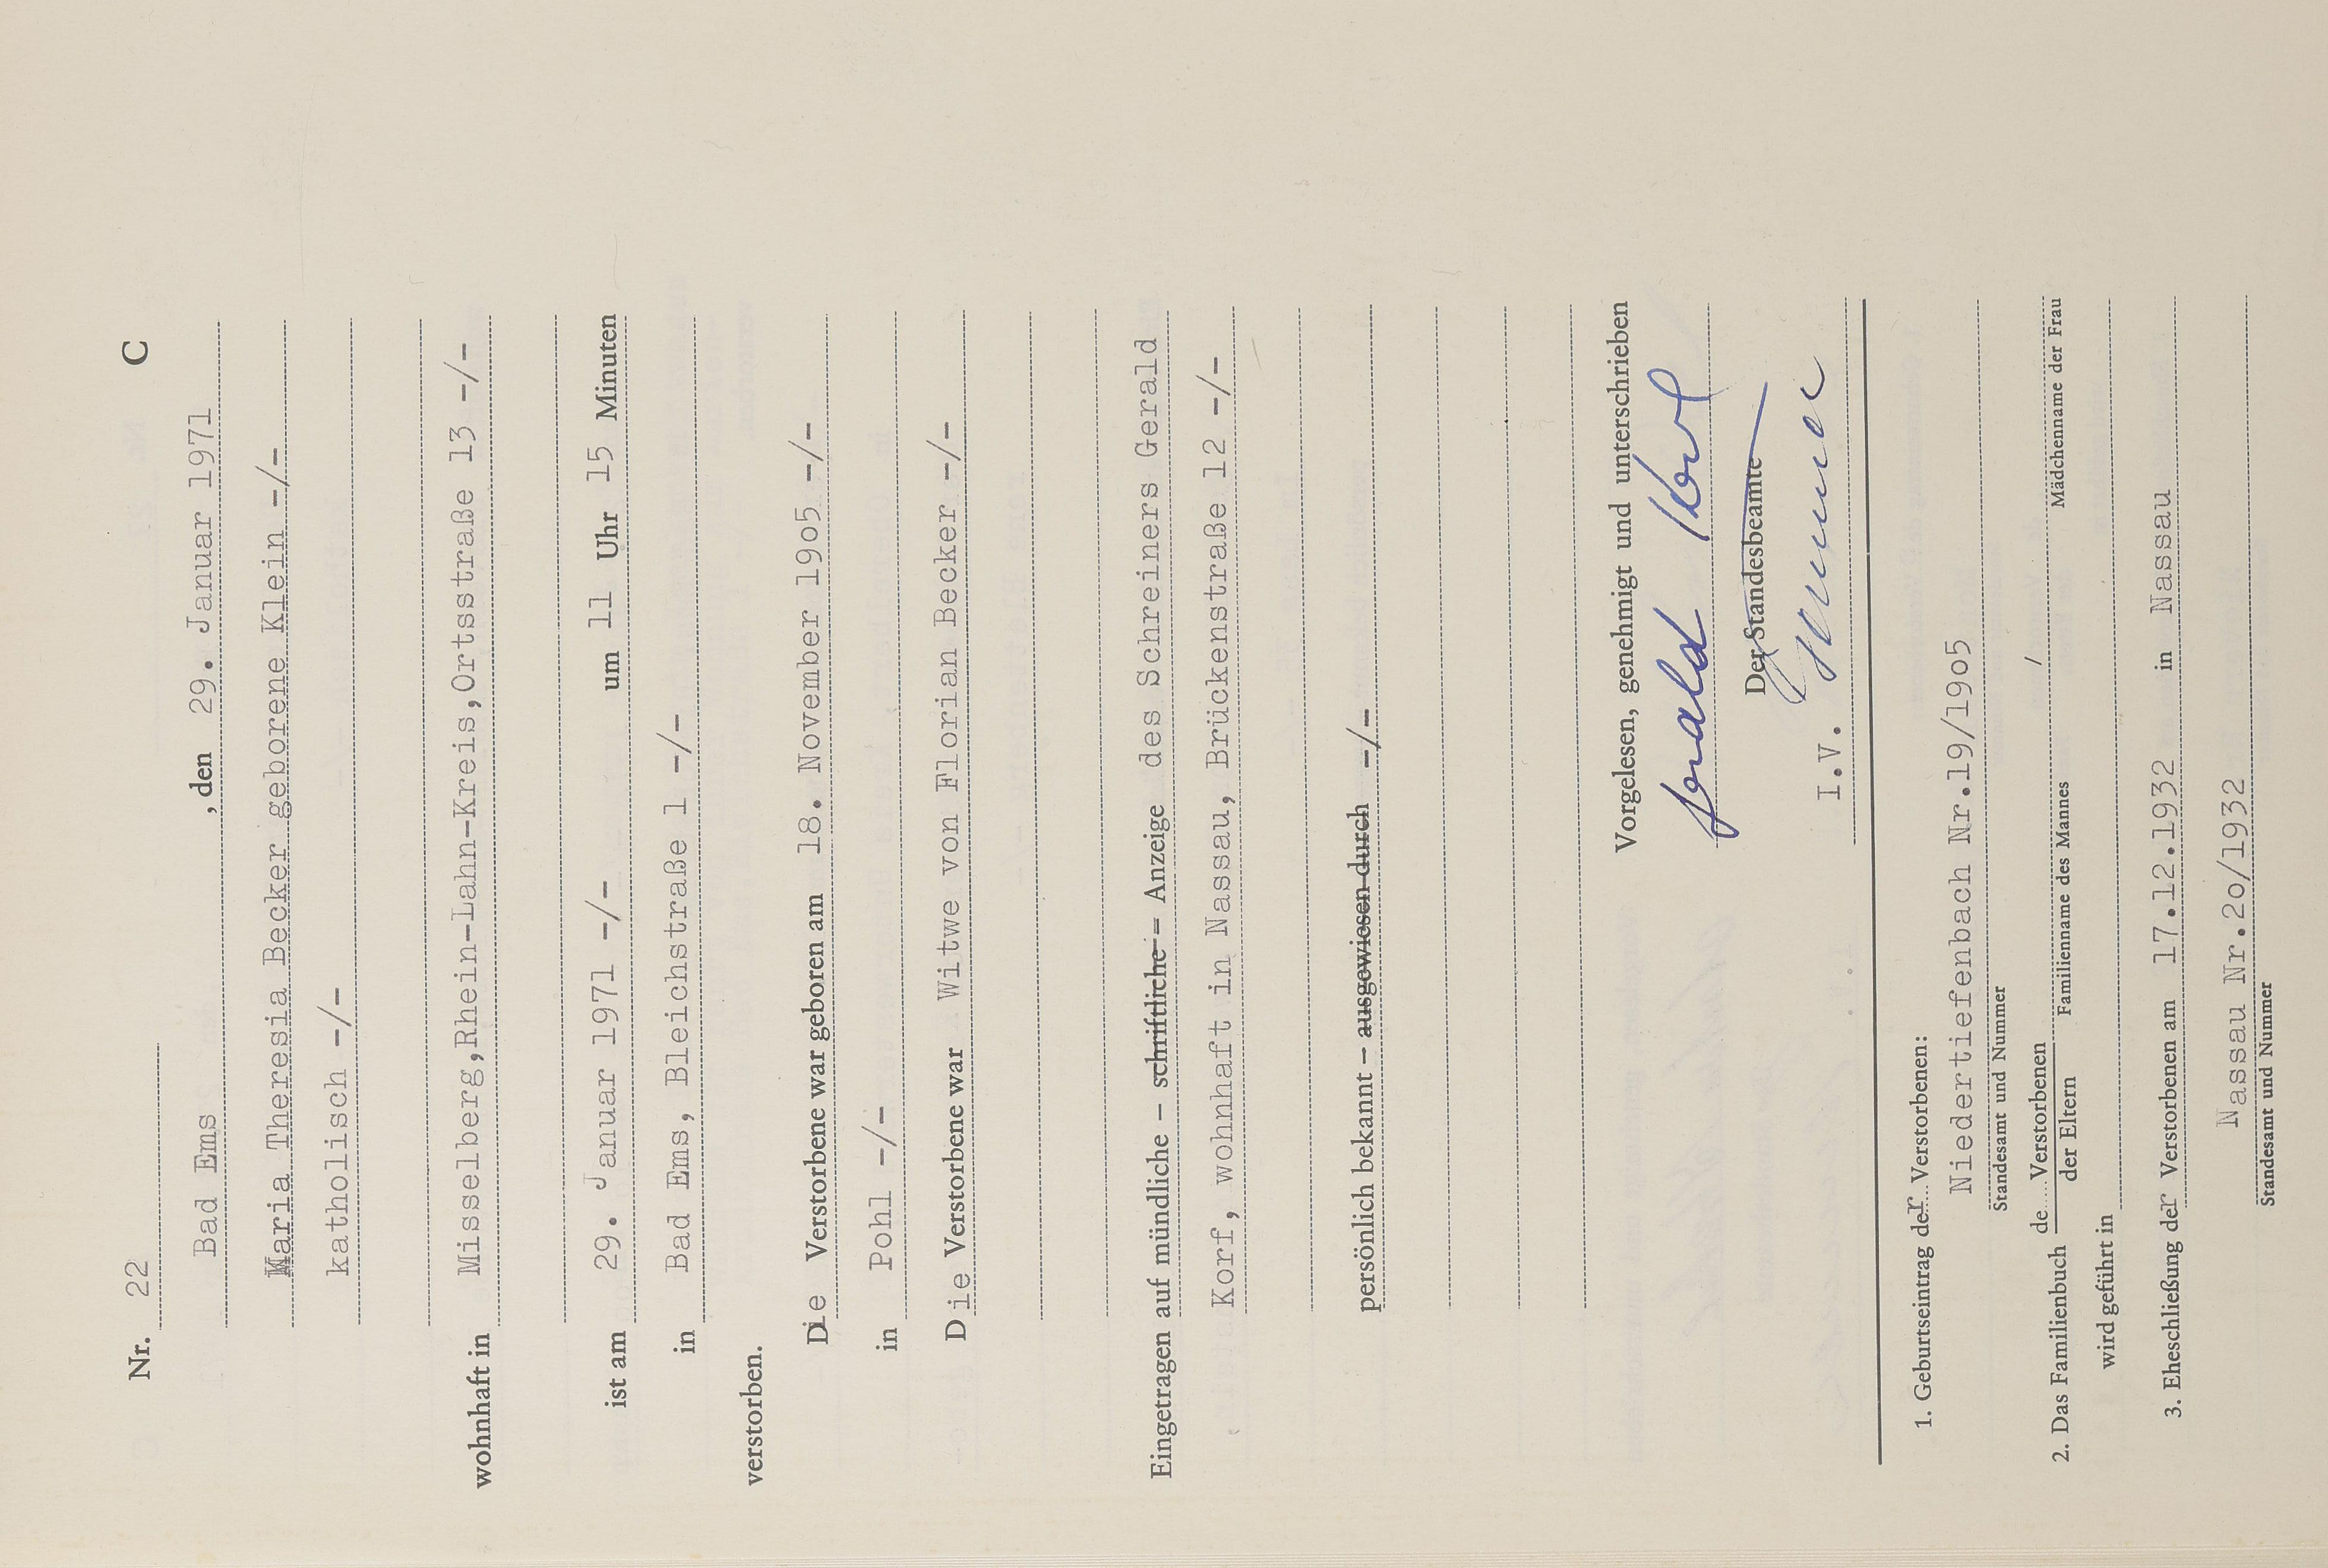 Nr. 22 C
Bad Ems , den 29. Januar 1971
Maria Theresia Becker geborene Klein -/-
katholisch -/-
wohnhaft in Misselberg,Rhein-Lahn-Kreis,Ortsstraße 13 -/-
ist am 29. Januar 1971 -/- um 11 Uhr 15 Minuten
in Bad Ems, Bleichstraße 1 -/-
verstorben.
Die Verstorbene war geboren am 18. November 19o5 -/-
in Pohl -/-
Die Verstorbene war Witwe von Florian Becker -/-
Eingetragen auf mündliche – schriftliche – Anzeige des Schreiners Gerald
Korf, wohnhaft in Nassau, Brückenstraße 12 -/-
persönlich bekannt – ausgewiesen durch -/-
Vorgelesen, genehmigt und unterschrieben
Gerald Korf
Der Standesbeamte
I.V.
1. Geburtseintrag der Verstorbenen:
Niedertiefenbach Nr.19/19o5
Standesamt und Nummer
2. Das Familienbuch de Verstorbenen / der Eltern /
Familienname des Mannes Mädchenname der Frau
wird geführt in
3. Eheschließung der Verstorbenen am 17.12.1932 in Nassau
Nassau Nr.2o/1932
Standesamt und Nummer